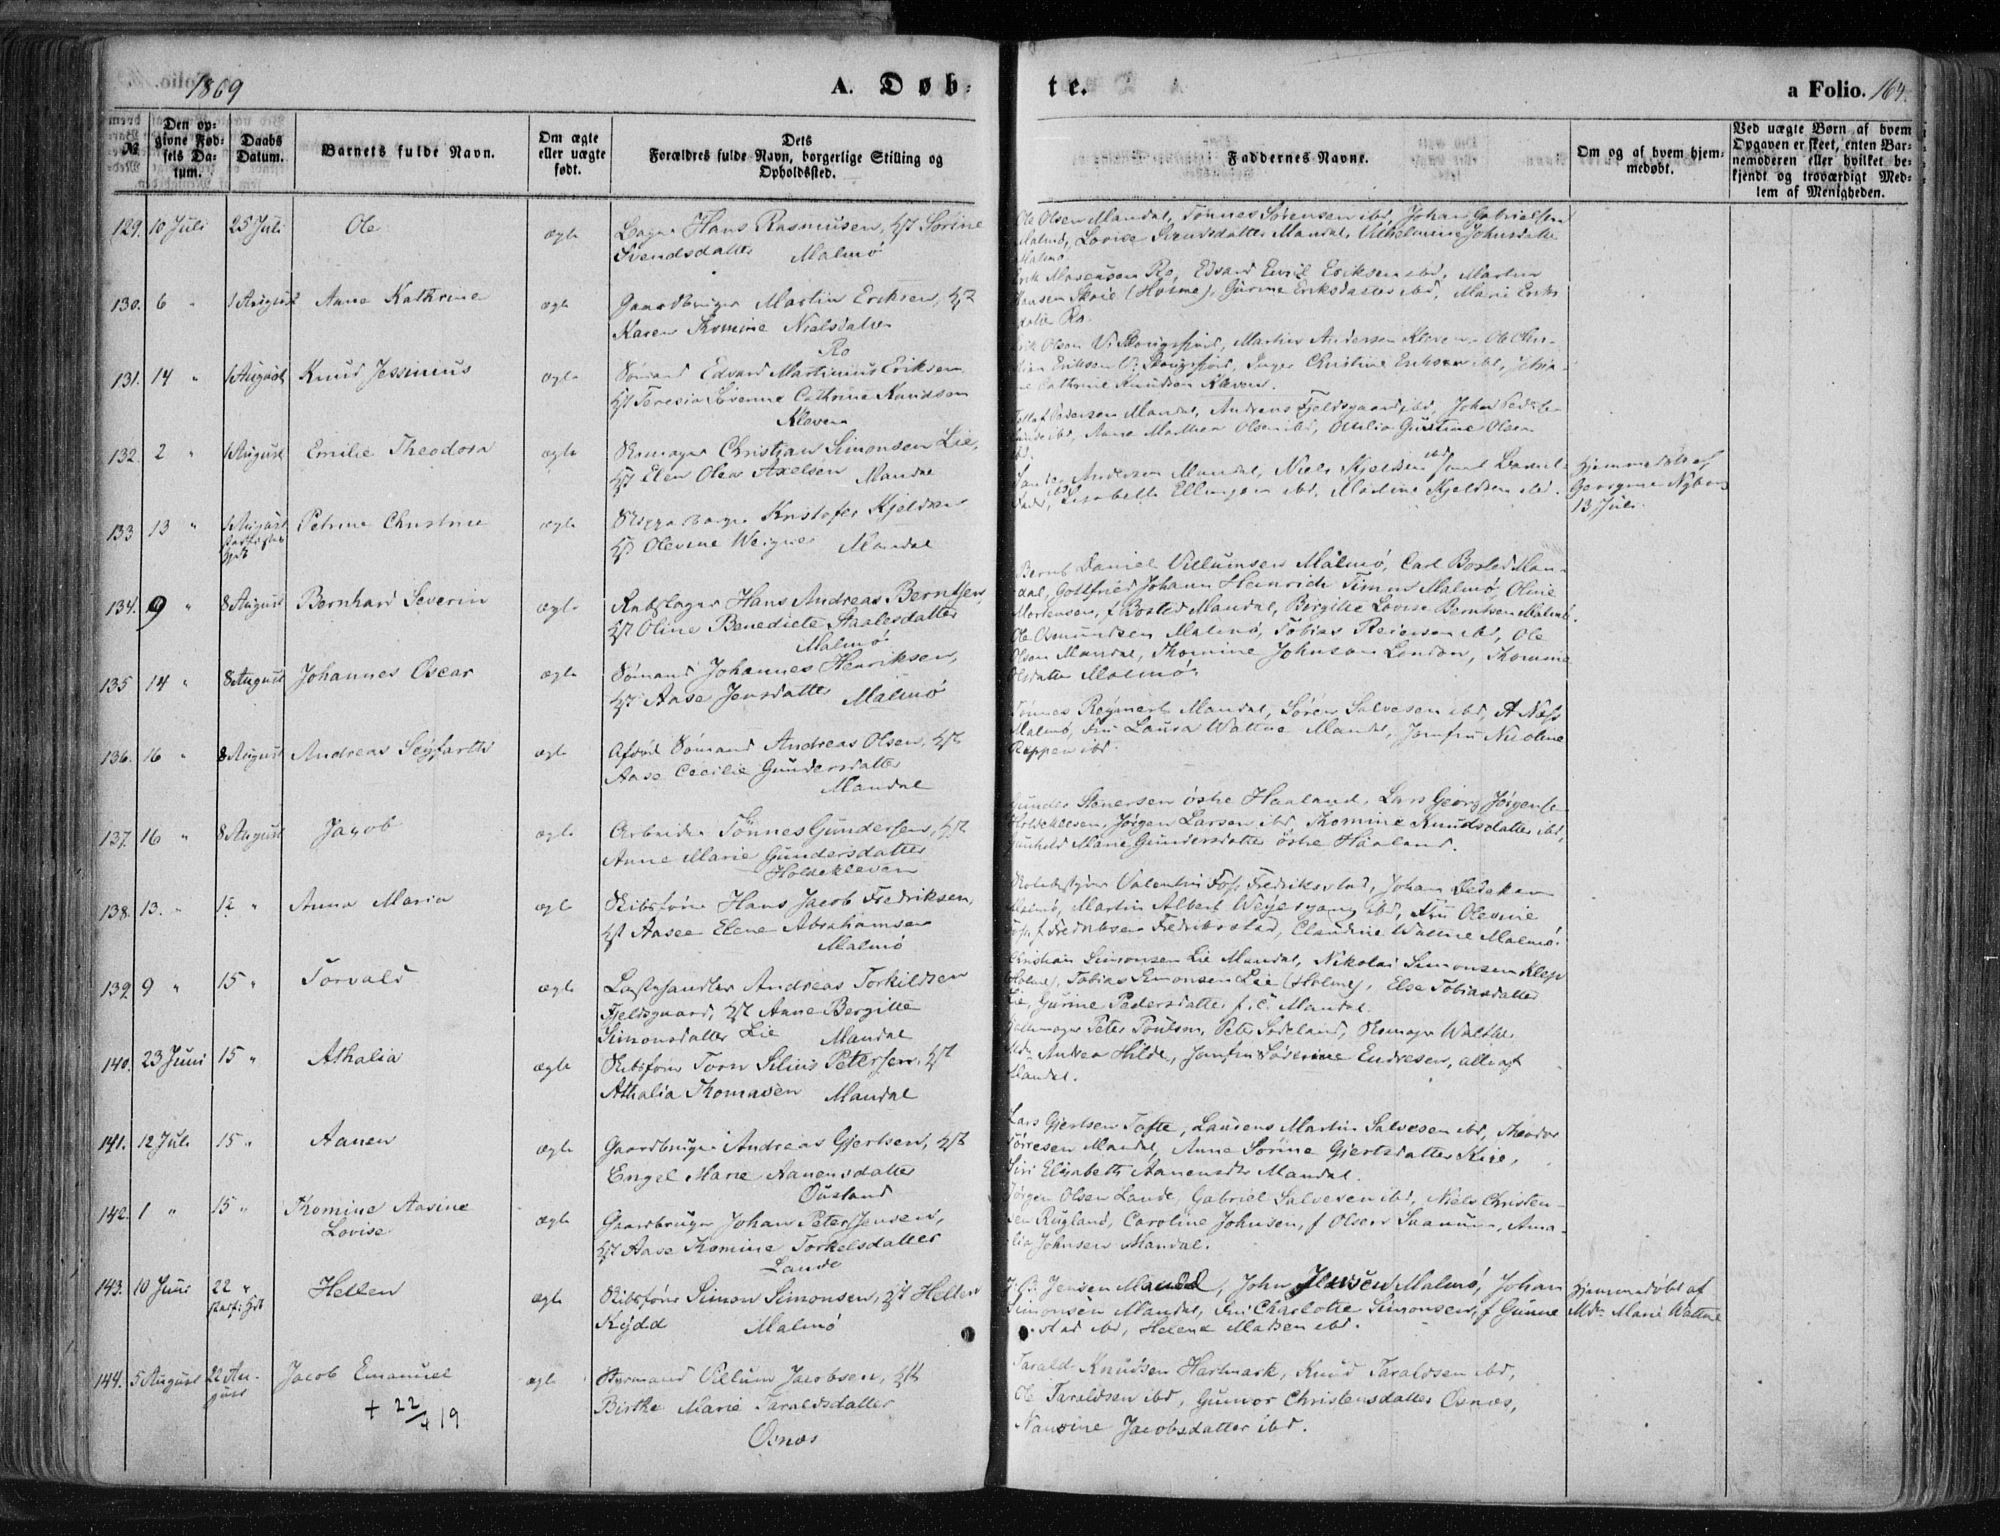 1869
A. Døb-
te.
a Folio. 164.
№
Den op-
givne Fød-
sels Da-
tum.
Daabs
Datum.
Barnets fulde Navn.
Om ægte
eller uægte
født.
Dets
Forældres fulde Navn, borgerlige Stilling og
Opholdssted.
Faddernes Navne.
Om og af hvem hjem-
medøbt.
Ved uægte Børn af hvem
Opgaven er skeet, enten Bar-
nemoderen eller hvilket be-
kjendt og troværdigt Med-
lem af Menigheden.
129. 10 Juli 25 Juli Ole ægte Hans Rasmusen, Hst Sørine
Svendsdatter Malmö
Ole Olsen Mandal, Tönnes Sørensen ibd, Johan Gabrielsen
Malmö, Lovise Svendsdatter Mandal, Vilhelmine Johnsdatter
Malmö
130. 6 " 1 August Anne Kathrine ægte Gaardbruger Martin Eriksen, Hst
Karen Thomine Nielsdatter
Ro
Ro, Edvard Emil Eriksen ibd, Martin
Hansen (Holme), Gurine Eriksdatter ibd, Marie Eriks
datter Ro.
131. 14 " 1 August Knud Jessinius ægte Sömand Edvard Martinius Eriksen
Hst Teresia Severine Cathrine Knudsen
Kleven
Erik Olsen, Martin Andersen Kleven, Ole Chri-
Eriksen, Inger Christine Eriksen ibd,
Cathrine Knudsen Kleven.
132. 2 " 1 August Emilie Theodora ægte Skomager Christian Simonsen Lie,
Hst Elen Olea Axelsen Mandal
Pedersen Mandal, Andreas Fjeldsgaard ibd, John
ibd, Anne Marthea Olsen ibd, Otilia Gustine Olsen
ibd.
133 13 " 1 August Petrine Christine ægte Kristofer Kjeldsen
Hst Olevine Weigner Mandal
Andersen Mandal, Niels Kjeldsen ibd
Lisabeth Ellingsen ibd, Martine Kjeldsen ibd.
Hjemmedøbt af
Georgine Nyborg
13 Juli
134. 9 " 8 August Bernhard Severin ægte Hans Andreas Berntsen,
Hst Oline Benedicte Staalesdatter
Malmö
Bernt Daniel Villumsen Malmö, Carl Bosted Man-
dal, Gottfried Johann Heinrich Timms Malmö, Oline
Mortensen, f Bosted Mandal, Birgitte Lovise Berntsen Malmö.
135 14 " 8 August Johannes Oscar ægte Sömand Johannes Henriksen,
Hst Aase Jensdatter Malmö
Ole Osmundsen Malmö, Tobias Reiersen ibd, Ole
Olsen Mandal, Thomine Johnson London, Thomine
Olsdatter Malmö.
136. 16 " 8 August Andreas Seyfarth ægte Afdöd Sömand Andreas Olsen, Hst
Aase Cecilie Gundersdatter
Mandal
Tönnes Reynert Mandal, Sören Salvesen ibd, A Næss
Malmö, Fru Laura Wattne Mandal, Jomfru Nicoline
Reppen ibd.
137. 16 " 8 August Jacob ægte Arbeider Tönnes Gundersen, Hst
Anne Marie Gundersdatter
Holsekleven
Gunder Stenersen östre Haaland, Lars Georg Jørgensen
Holsekleven, Jørgen Larsen ibd, Thomine Knudsdatter ibd,
Gunhild Marie Gundersdatter östre Haaland.
138. 13. " 12 " Anna Maria ægte Skibsförer Hans Jacob Fredriksen,
Hst Aasee Elene Abrahamsen
Malmö
Valentin Foss Fredrikstad, Johan
Malmö, Martin Albert Weyergang ibd, Fru Olevine
Foss f Fredriksen Fredrikstad, Claudine Wattne Malmö.
139. 9 " 15 " Torvald ægte Andreas Torkildsen
Fjeldsgaard, Hst Anne Bergitte
Simonsdatter Lie Mandal
Christian Simonsen Lie Mandal, Nikolai Simonsen Klep
(Holme), Tobias Simonsen Lie (Holme), Else Tobiasdatter
Lie, Gurine Pedersdatter, Mandal.
140. 23 Juni 15 " Athalia ægte Skibsförer Torn Silius Petersen, Hst
Athalia Thomasen Mandal
Peter Poulson, Peter Sødeland, Skomager Walther
Andrea Hilde, Jomfru Söverine Endresen, alle af
Mandal.
141. 12 Juli 15 " Aanen ægte Gaardbruger Andreas Gjertsen, Hst
Engel Marie Aanensdatter
Ousland
Lars Gjertsen Tofte, Laurens Martin Salvesen ibd, Theodor
Tørresen Mandal, Anne Sørine Gjertsdatter
Siri Elisabeth Aanensdtr Mandal.
142. 1 " 15 " Thomine Aasine
Lovise
ægte Gaardbruger Johan Peter Jensen,
Hst Aase Thomine Torkelsdatter
Lande
Jørgen Olsen Lande, Gabriel Salvesen ibd, Niels Christen-
sen Rugland, Caroline Johnsen, f Olsen, Ama-
lia Johnsen Mandal.
143. 10 Juni 22 " Hellen ægte Skibsförer Simon Simonsen, Hst Hellen
Kydd Malmö
Jensen Mandal, John Jensen Malmö, Johan
Simonsen Mandal, Fru Charlotte Simonsen, f Gunne
stad ibd, Helene Madsen ibd.
Hjemmedøbt af
Mdm Marie Wattne
144. 5 August 22 Au-
gust
Jacob Emanuel
+ 22/4 19
ægte Styrmand Villum Jacobsen, Hst
Birthe Marie Taraldsdatter
Osnæs
Tarald Knudsen Hartmark, Knud Taraldsen ibd,
Ole Taraldsen ibd, Gunvor Christensdatter Osnæs,
Nausine Jacobsdatter ibd.